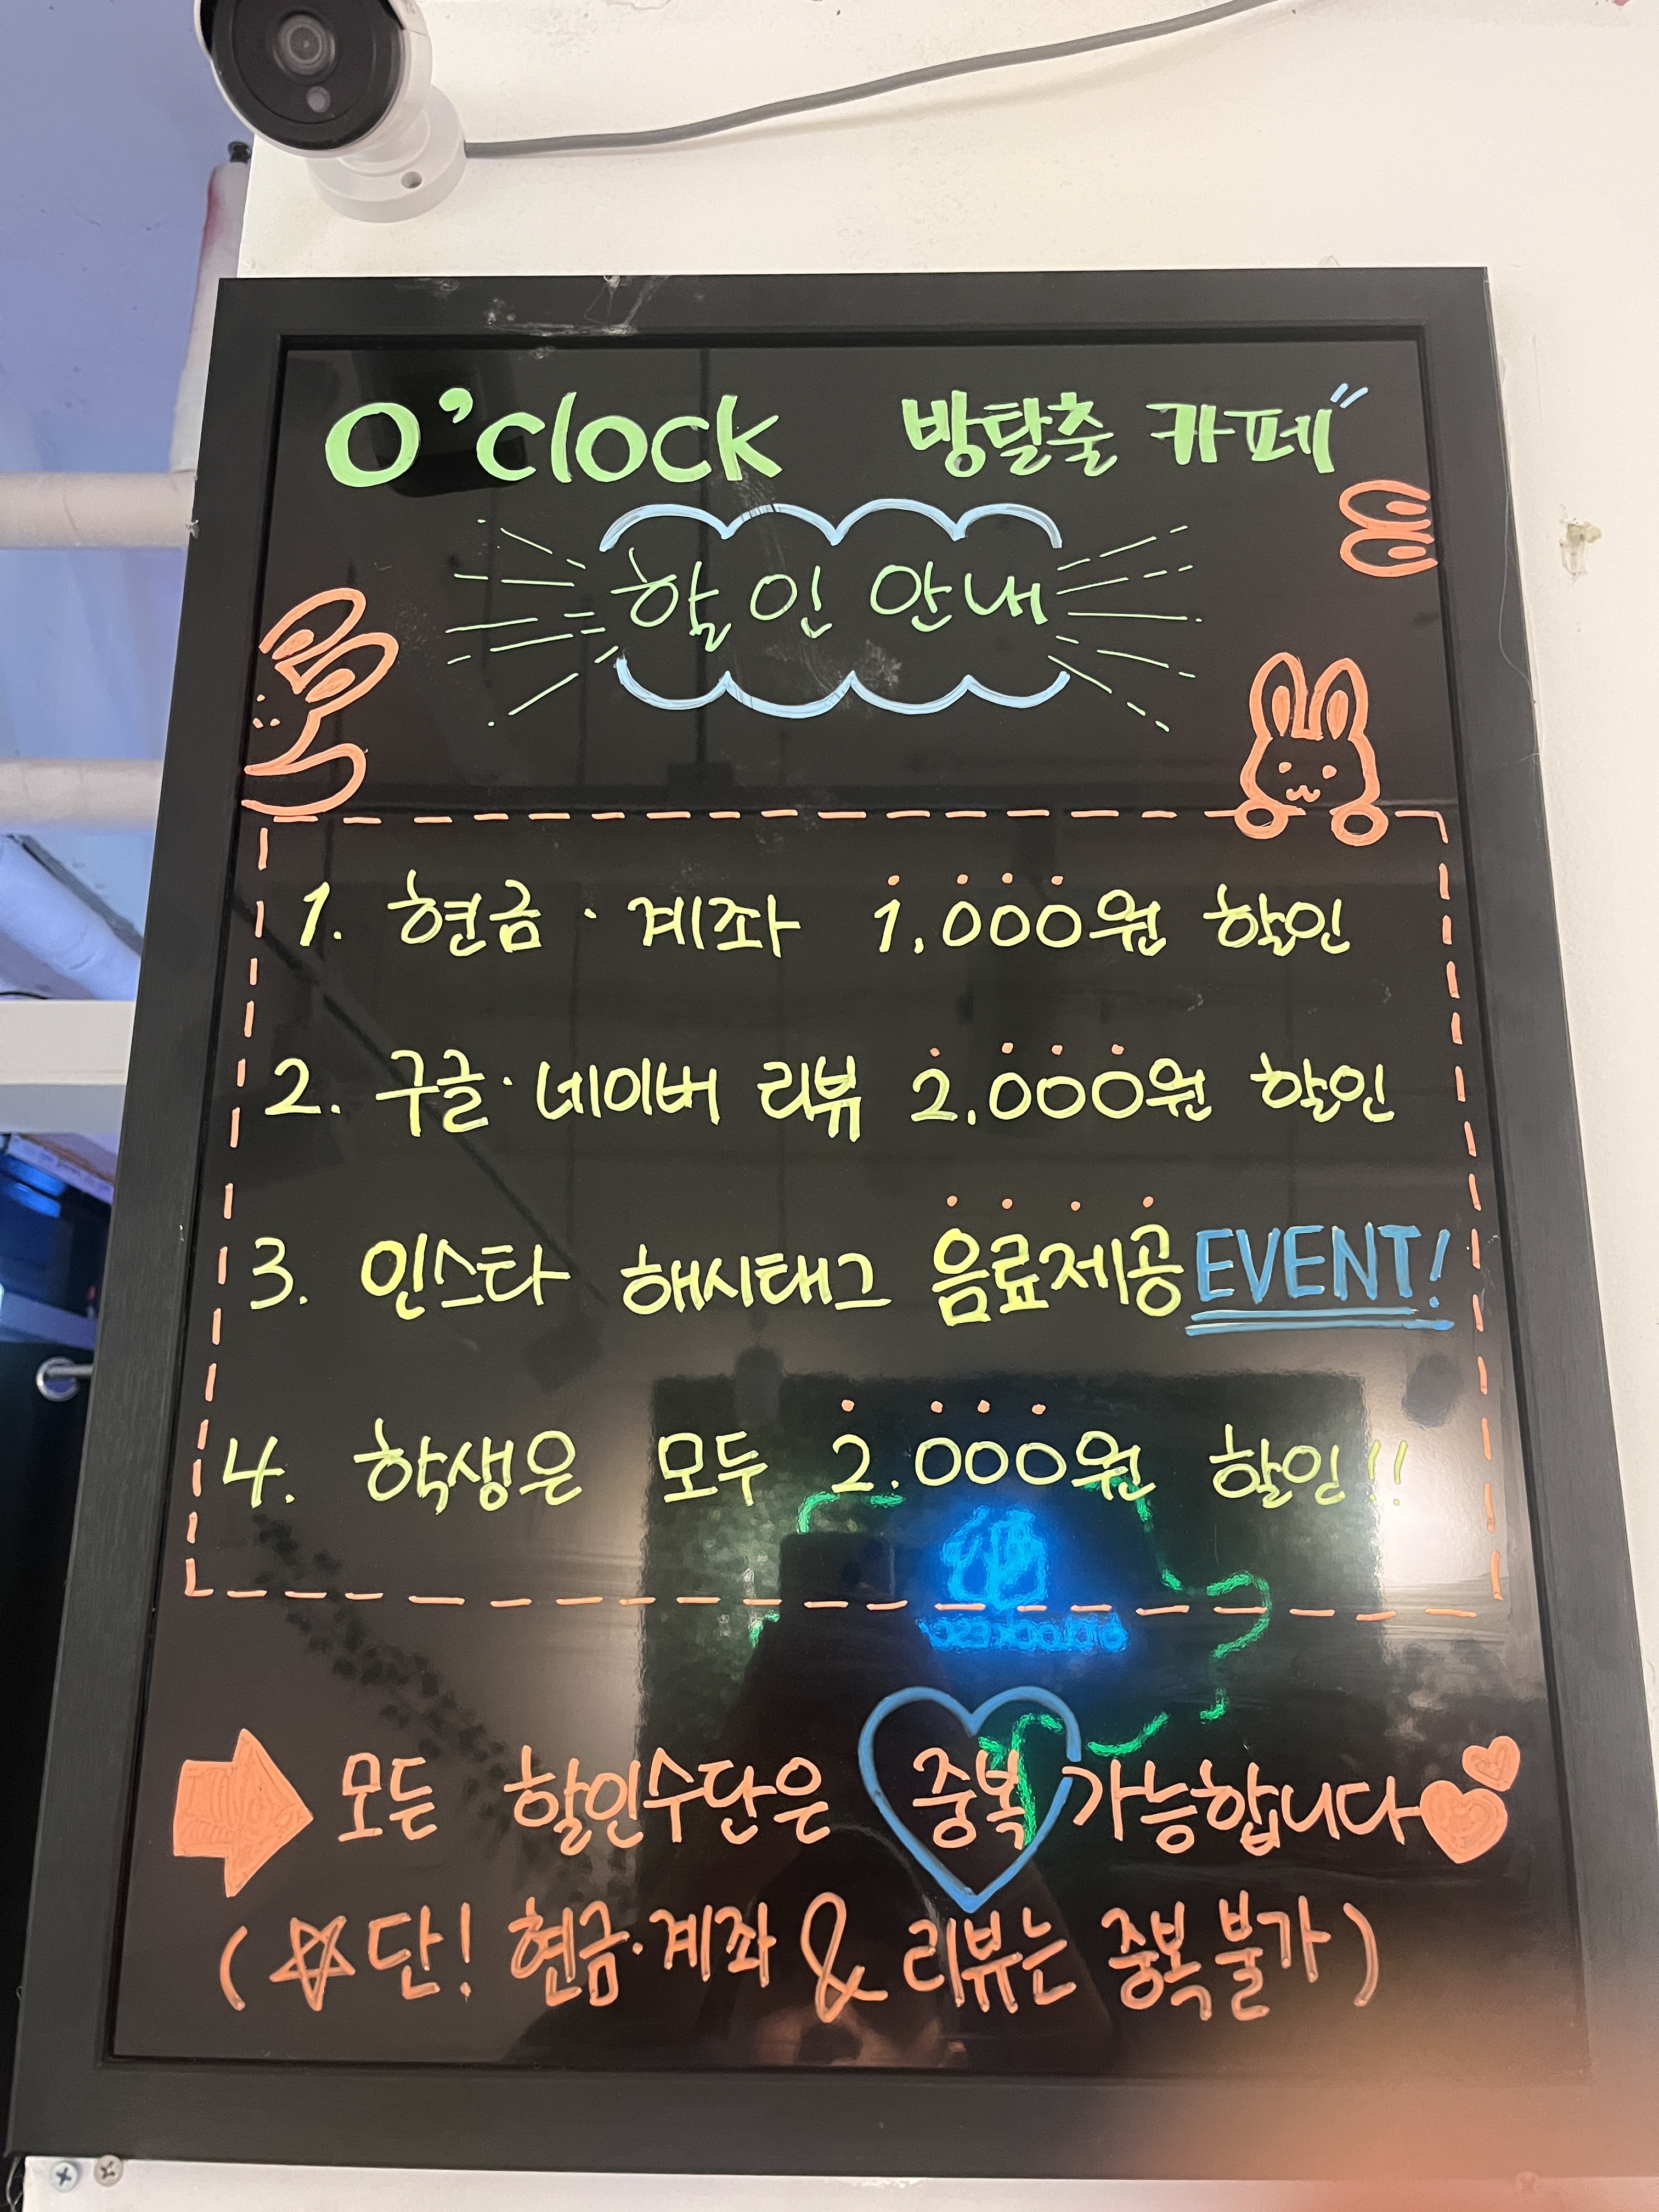 O'clock 방탈출 카페"
할인 안내
1. 현금·계좌 1,000원 할인
2. 구글·네이버 리뷰 2,000원 할인
3. 인스타 해시태그 음료제공 EVENT!
4. 학생은 모두 2.000원 할인!!
모든 할인수단은 중복 가능합니다
(☆단! 현금·계좌 & 리뷰는 중복 불가)